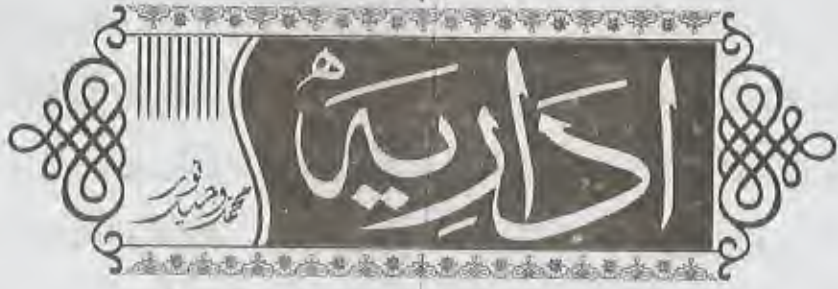 اداریہ
محمد وحید نوری